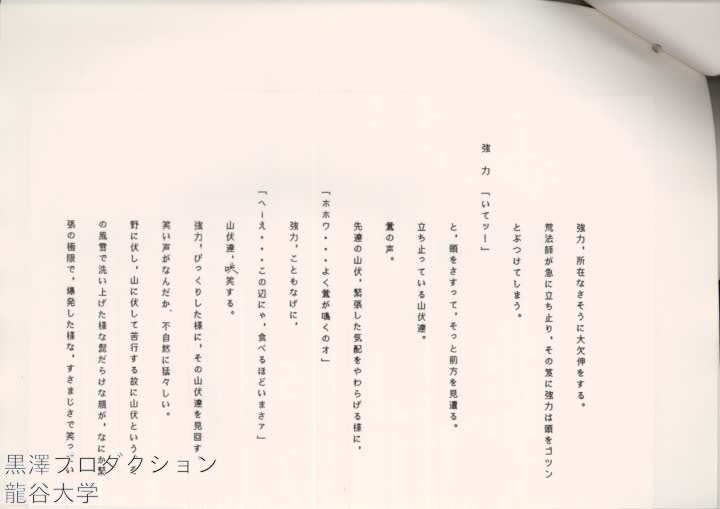 強力，所在なさそうに大欠伸をする。
荒法師が急に立ち止り，その笈に強力は頭をゴツン
とぶつけてしまう。
強　力　「いてッ！」
と，頭をさすって，そっと前方を見遣る。
立ち止っている山伏達。
鶯の声。
先達の山伏，緊張した気配をやわらげる様に，
「ホホワ・・・よく鶯が鳴くのオ」
強力，こともなげに，
「へーえ・・・この辺にゃ，食べるほどいまさァ」
山伏達，哄笑する。
強力，びっくりした様に，その山伏達を見回す
笑い声がなんだか、不自然に猛々しい。
野に伏し，山に伏して苦行する故に山伏という
の風雪で洗い上げた様な髭だらけな顔が，なにか緊
張の極限で，爆発した様な，すさまじさで笑ってい
黒澤プロダクション
龍谷大学